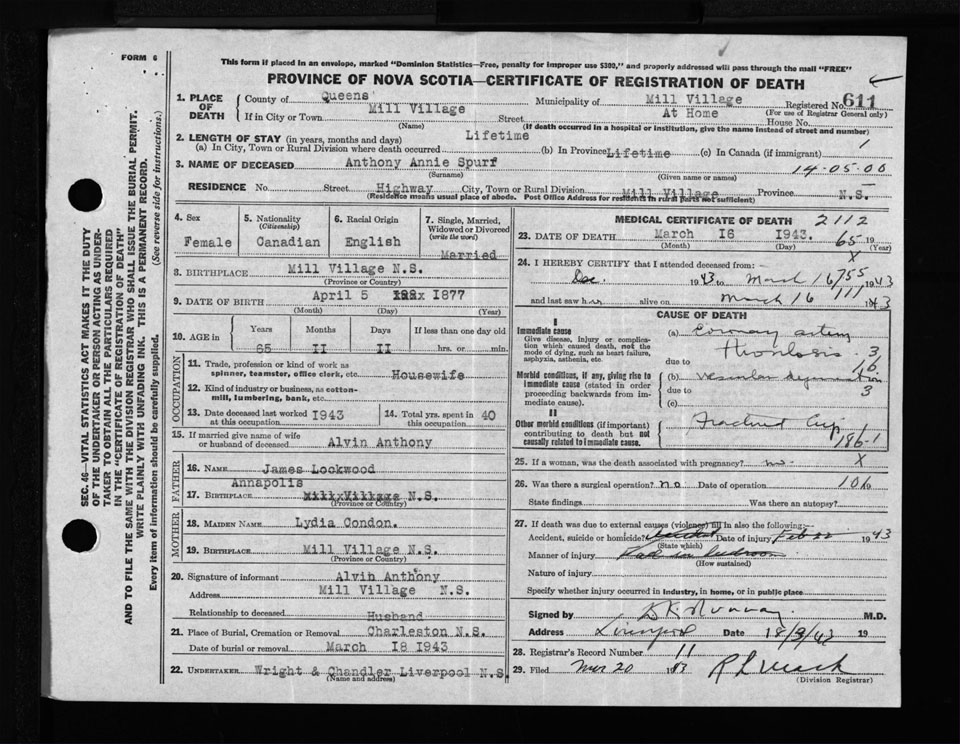 FORM 6
This form if placed in an envelope, marked "Dominion Statistics—Free, penalty for improper use $300," and properly addressed will pass through the mail "FREE"
PROVINCE OF NOVA SCOTIA—CERTIFICATE OF REGISTRATION OF DEATH
SEC. 46—VITAL STATISTICS ACT MAKES IT THE DUTY
OF THE UNDERTAKER OR PERSON ACTING AS UNDER-
TAKER TO OBTAIN ALL THE PARTICULARS REQUIRED
IN THE "CERTIFICATE OF REGISTRATION OF DEATH"
AND TO FILE THE SAME WITH THE DIVISION REGISTRAR WHO SHALL ISSUE THE BURIAL PERMIT.
WRITE PLAINLY WITH UNFADING INK. THIS IS A PERMANENT RECORD.
Every item of information should be carefully supplied. (See reverse side for instructions.)
1. PLACE OF DEATH County of Queens Municipality of Mill Village Registered No. 611
If in City or Town Mill Village Street At Home House No. (For use of Registrar General only)
(Name) (If death occurred in a hospital or institution, give the name instead of street and number)
2. LENGTH OF STAY (in years, months and days) Lifetime 1
(a) In City, Town or Rural Division where death occurred (b) In Province Lifetime (c) In Canada (if immigrant)
3. NAME OF DECEASED Anthony Annie Spurr 14-05-00
(Surname) (Given name or names)
RESIDENCE No. Street Highway City, Town or Rural Division Mill Village Province N.S.
(Residence means usual place of abode. Post Office Address for residents in rural parts not sufficient)
4. Sex Female
5. Nationality (Citizenship) Canadian
6. Racial Origin English
7. Single, Married, Widowed or Divorced (write the word) Married
8. BIRTHPLACE Mill Village N.S.
(Province or Country)
9. DATE OF BIRTH April 5 1877
(Month) (Day) (Year)
10. AGE in Years Months Days If less than one day old
65 II II hrs. or min.
OCCUPATION
11. Trade, profession or kind of work as spinner, teamster, office clerk, etc. Housewife
12. Kind of industry or business, as cotton-mill, lumbering, bank, etc.
13. Date deceased last worked at this occupation 1943
14. Total yrs. spent in this occupation 40
15. If married give name of wife or husband of deceased Alvin Anthony
FATHER
16. NAME James Lockwood
Annapolis
17. BIRTHPLACE Mill Village N.S.
(Province or Country)
MOTHER
18. MAIDEN NAME Lydia Condon.
19. BIRTHPLACE Mill Village N.S.
(Province or Country)
20. Signature of informant Alvin Anthony
Address Mill Village N.S.
Relationship to deceased Husband
21. Place of Burial, Cremation or Removal Charleston N.S.
Date of burial or removal March I8 1943
22. UNDERTAKER Wright & Chandler Liverpool N.S.
(Name and address)
MEDICAL CERTIFICATE OF DEATH 2112
23. DATE OF DEATH March I6 1943. 65 19
(Month) (Day) (Year)
X
24. I HEREBY CERTIFY that I attended deceased from:
Dec. 1943 to March 16 755 1943
and last saw her alive on March 16 111, 43
CAUSE OF DEATH
I
Immediate cause
Give disease, injury or complication which caused death, not the mode of dying, such as heart failure, asphyxia, asthenia, etc.
(a) Coronary artery
thrombosis. 3
due to
Morbid conditions, if any, giving rise to immediate cause (stated in order proceeding backwards from immediate cause).
(b) Vascular degeneration
due to 3
(c)
II
Other morbid conditions (if important) contributing to death but not causally related to immediate cause.
Fractured hip
186-1
25. If a woman, was the death associated with pregnancy? no X
26. Was there a surgical operation? no Date of operation 106
State findings Was there an autopsy?
27. If death was due to external causes (violence) fill in also the following:—
Accident, suicide or homicide? Accident Date of injury Feb 22 1943
(State which)
Manner of injury bedroom
(How sustained)
Nature of injury
Specify whether injury occurred in industry, in home, or in public place
Signed by Murray M.D.
Address Liverpool Date 18/3/43 19
28. Registrar's Record Number 11
29. Filed Mar 20 1943
(Division Registrar)